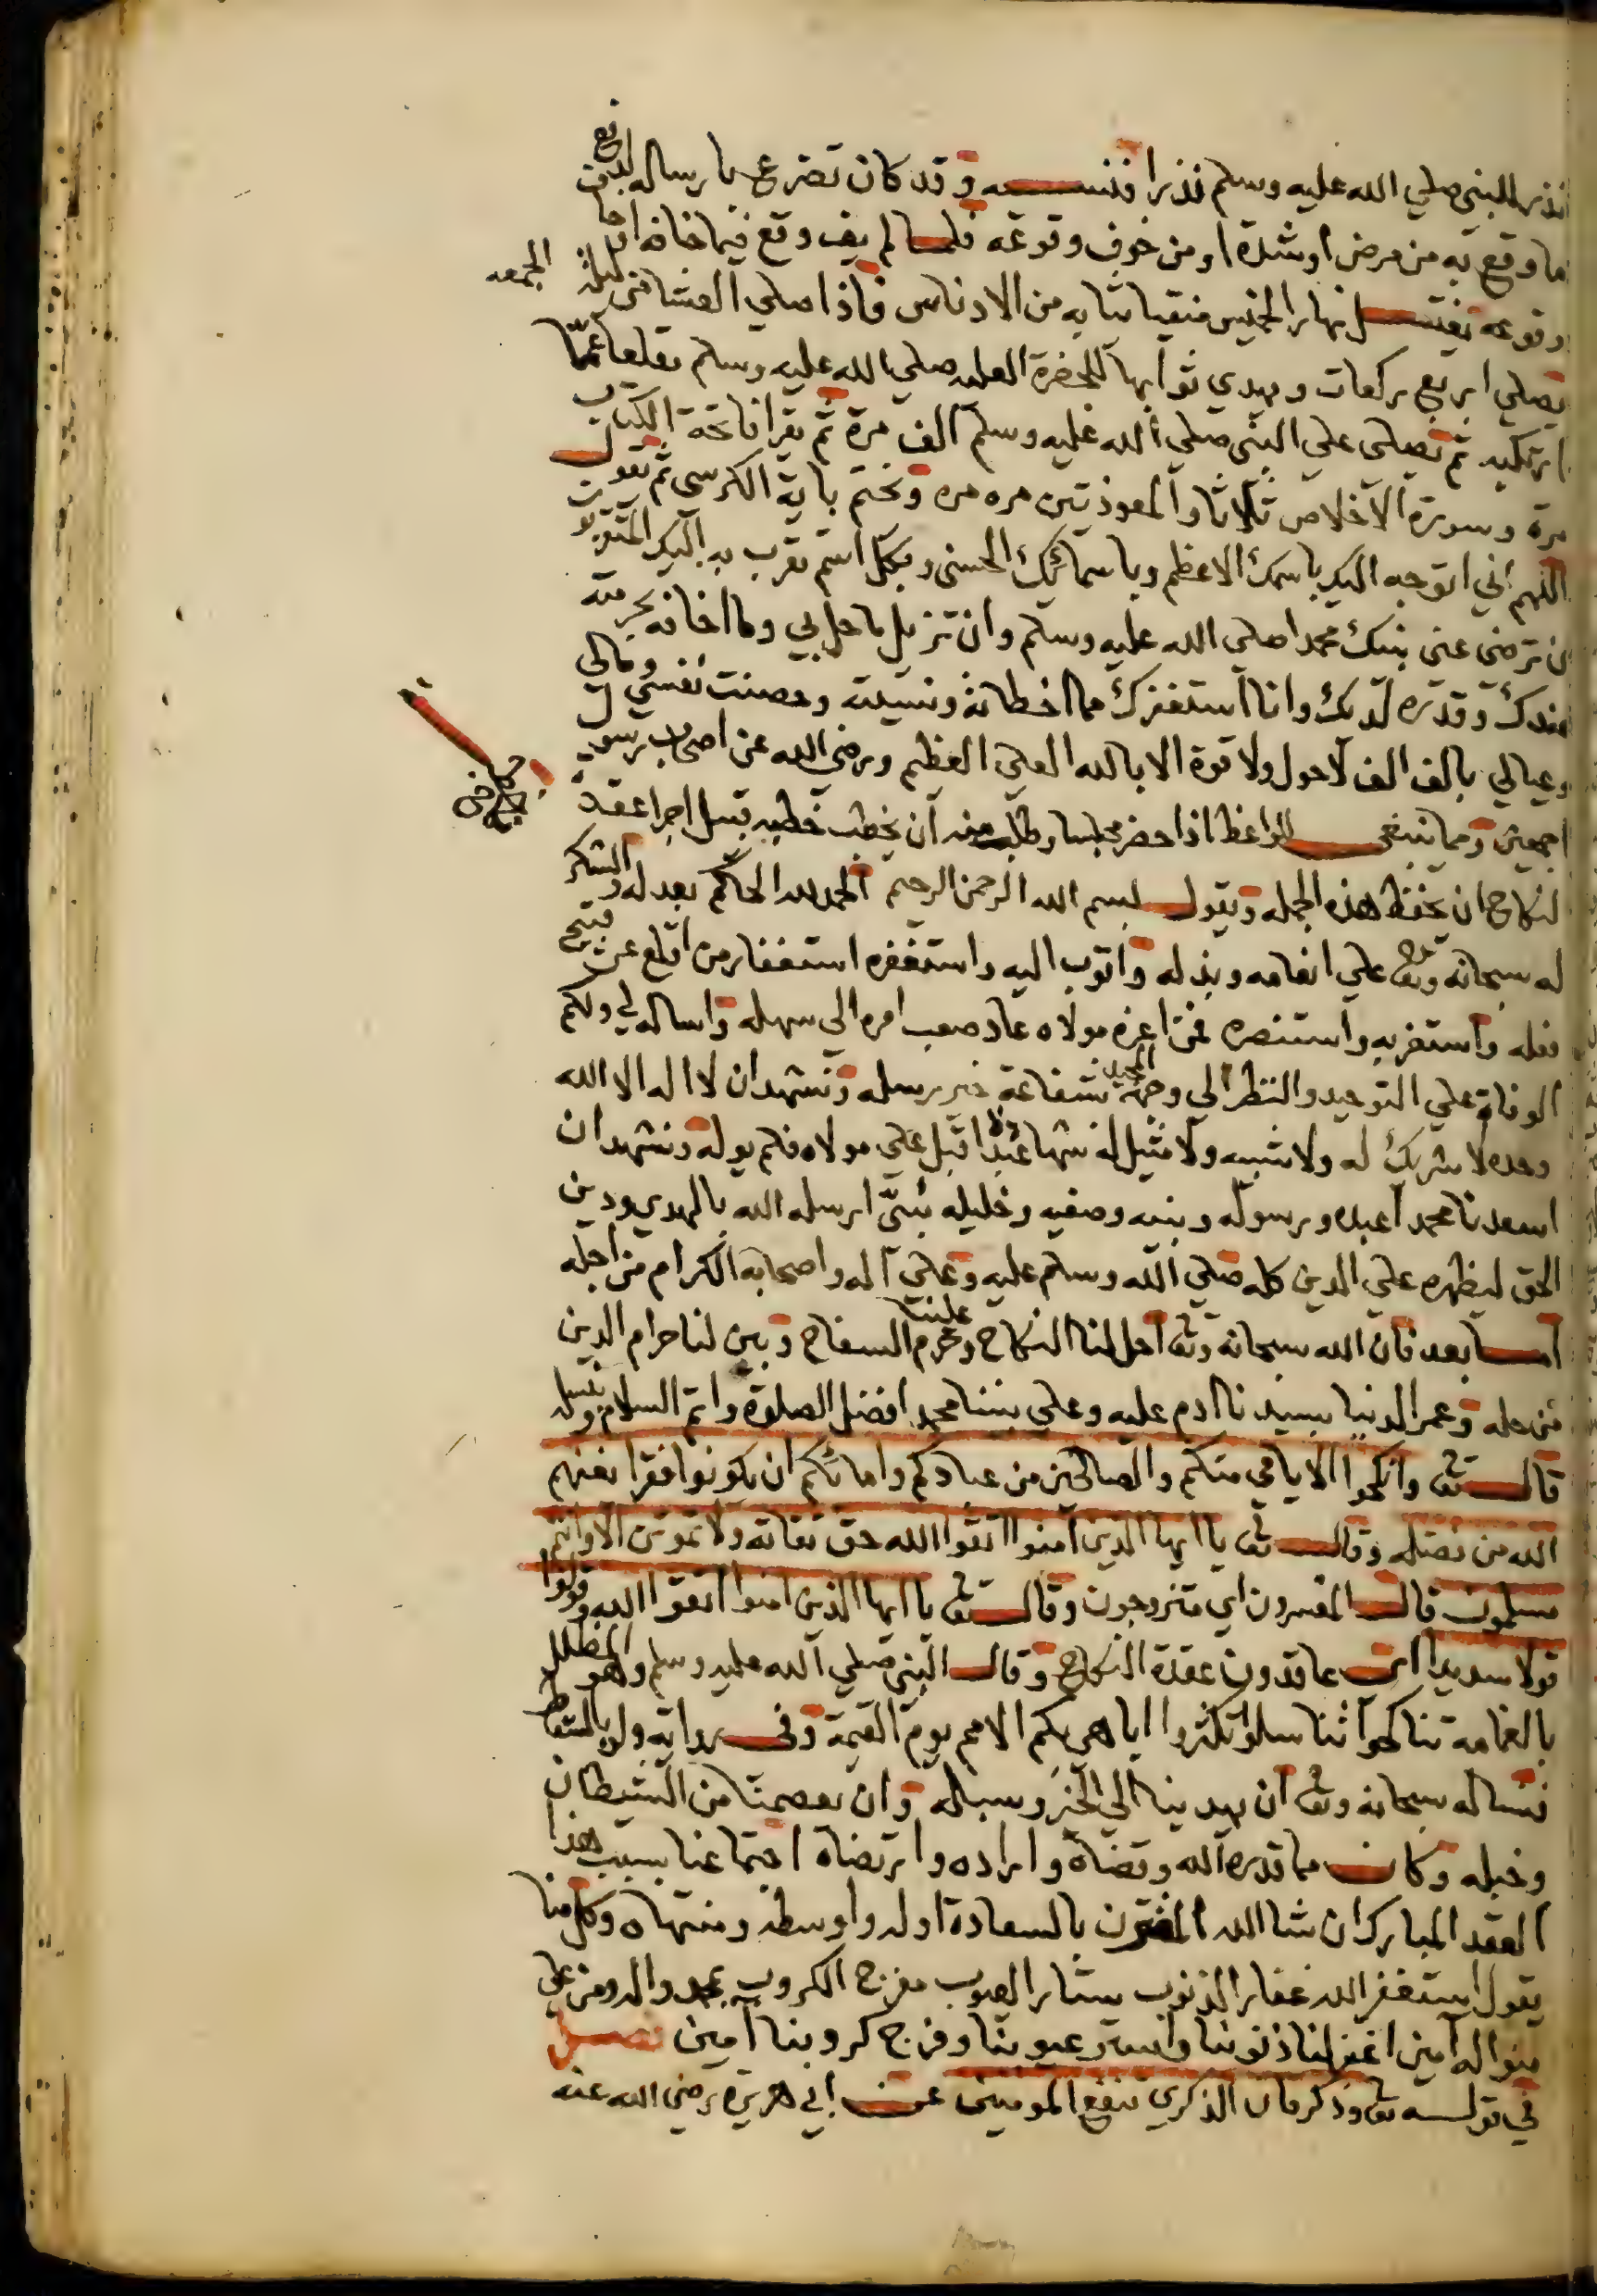 نذر للنبي صلي الله عليه وسلم نذرا فنسيه وقد كان تضرع بارساله لدفع
ما وقع به من مرض او شدة او من خوف وقوعه فلما لم يف وقع فيما خافه اما
وقوعه يغتسل نهار الخميس منقيا ثيابه من الادناس فاذا صلي العشا من ليلة الجمعه
يصلي اربع ركعات ويهدي ثوابها للحضرة العليه صلي الله عليه وسلم مقلعا عمّا
ارتكبه ثم يصلي علي النبي صلي الله عليه وسلم الف مرة ثم يقرا فاتحة الكتاب
مرة وسورة الاخلاص ثلاثا والمعوذتين مره مره ويختم باية الكرسي ثم يقول
اللهم اني اتوجه اليك باسمك الاعظم وباسمائك الحسني وبكل اسم تقرب به اليك المتقربون
ان ترضي عني نبيك محمدا صلي الله عليه وسلم وان تزيل ما حل بي وما اخافه بحرمته
عندك وقدره لديك وانا استغفرك مما اخطاته ونسيته وحصنت نفسي ومالي
وعيالي بالف الف لا حول ولا قوة الا بالله العلي العظيم ورضي الله عن اصحاب رسول
اجمعين ومما ينبغي للواعظ اذا حضر مجلسا وطلب منه ان يخطب خطبه قبل اجرا عقد
النكاح ان يحفظ هذه الجمله ويقول بسم الله الرحمن الرحيم الحمد لله الحاكم بعدله والشكر
له سبحانه وتعالي علي انعامه وبذله واتوب اليه واستغفره استغفار من اقلع عن قبيح
فعله واستعز به واستنصره فمن اعزه مولاه عاد صعب امره الي سهله واساله لي ولكم
الوفاة علي التوحيد والنظر الي وجهه المجيد شفاعة خير رسله ونشهد ان لا اله الا الله
وحده لا شريك له ولا شبيه ولا مثيل له شهادة عبد اقبل علي مولاه فلم يوله ونشهد ان
اسعدنا محمدا عبده ورسوله ونبيه وصفيه وخليله نبيّ ارسله الله بالهدي ودين
الحق ليظهره علي الدين كله صلي الله وسلم عليه وعلي آله واصحابه الكرام من اجله
اما بعد فان الله سبحانه وتع احل لنا النكاح وحرم علينا السفاح وبين لنا حرام الدين
من حله وعمر الدنيا بسيدنا ادم عليه وعلي نبينا محمد افضل الصلوة واتم السلام ونسله
قال تع وانكحوا الايامي منكم والصالحين من عبادكم وامائكم ان يكونوا فقرا يغنهم
الله من فضله وقال تع يا ايها الذين آمنوا اتقوا الله حق تقاته ولا تموتن الا وانتم
مسلمون قال المفسرون اي متزوجون وقال تع يا ايها الذين امنوا اتقوا الله وقولوا
قولا سديدا اي عاقدون عقدة النكاح وقال النبي صلي الله عليه وسلم وهو المظلل
بالغمامة تناكحوا تناسلوا تكثروا اباهي بكم الامم يوم القيمة وفي رواية ولو بالسقط
نساله سبحانه وتع ان يهدينا الي الخير وسبله وان يعصمنا من الشيطان
وخبله وكان مما قدره الله وقضاه واراده وارتضاه اجتماعنا بسبب هذا
العقد المبارك ان شا الله المقترن بالسعادة اوله واوسطه ومنتهاه وكل منا
يقول استغفر الله غفار الذنوب ستار العيوب مفرج الكروب بمحمد واله ومن علي
منواله آمين اغفر لنا ذنوبنا واستر عيوبنا وفرج كروبنا آمين فصل
في قوله تع وذكر فان الذكري تنفع المومنين عن ابي هريرة رضي الله عنه